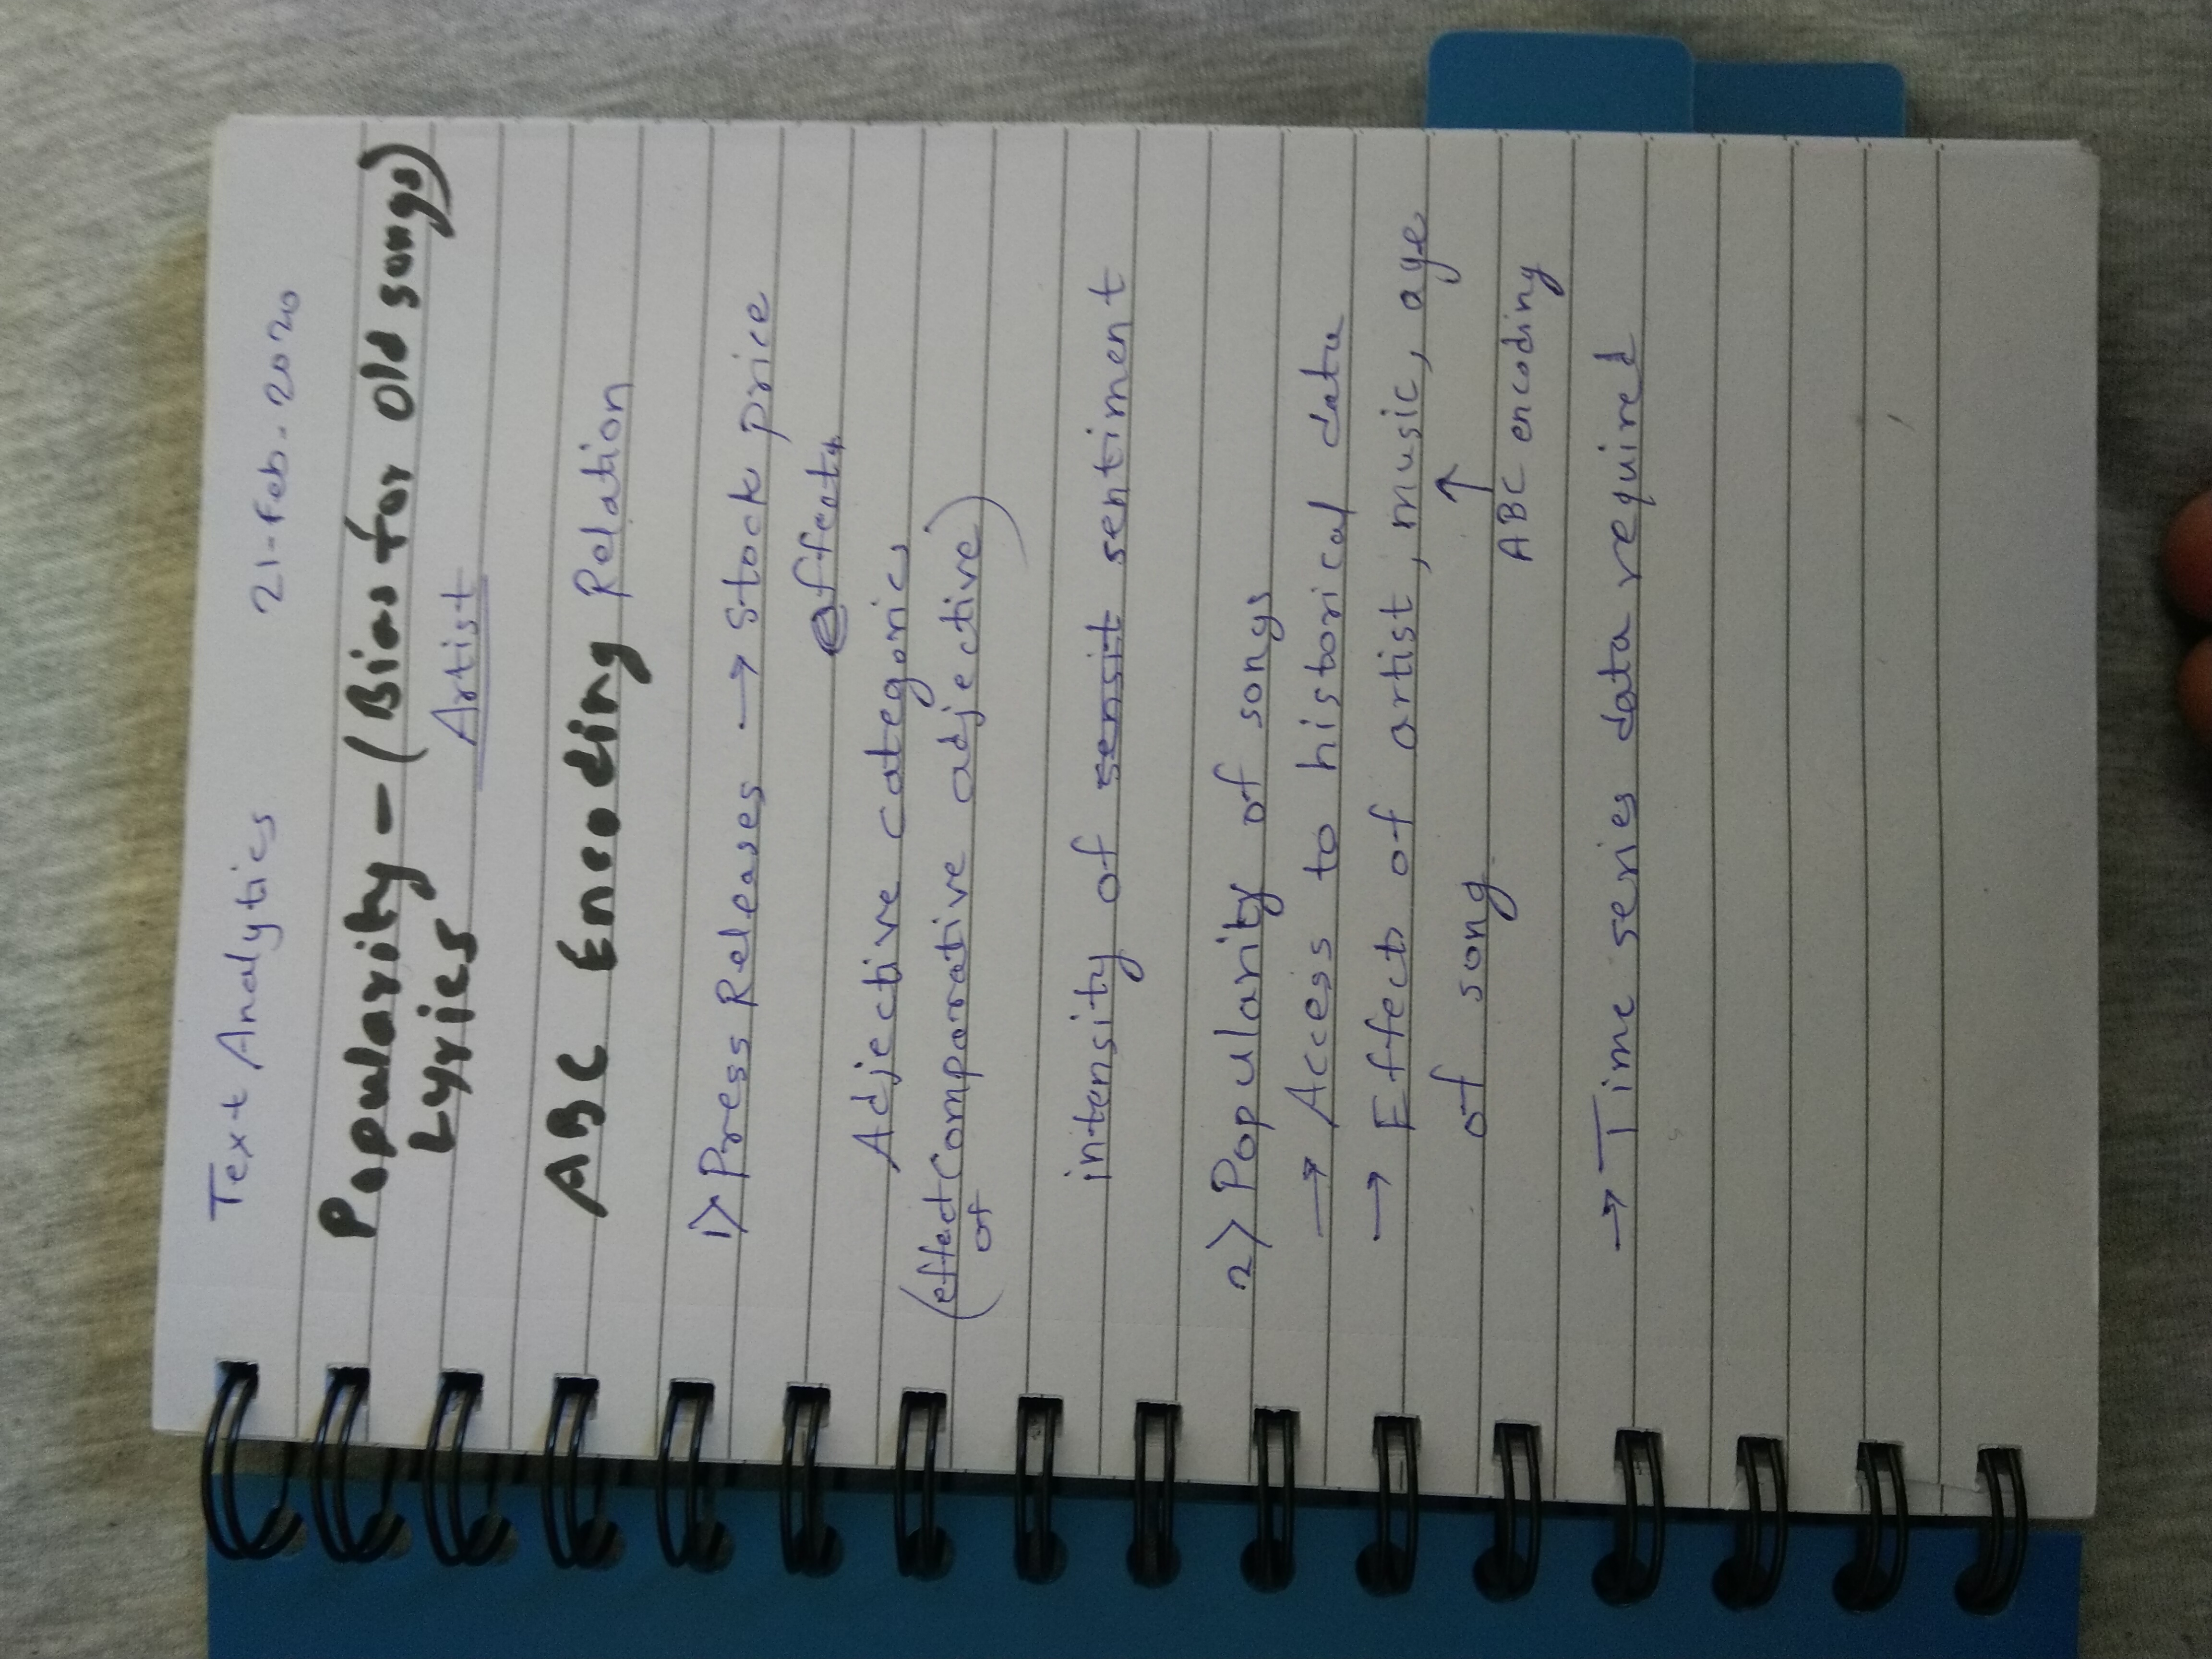 Text Analytics 21-Feb-2020
Popularity - (Bias for old songs)
Lyrics Artist
ABC Encoding Relation
1) Press Releases → Stock price
effect
Adjective categories
(effect of Comparative adjective)
intensity of sensit sentiment
2) Popularity of songs
→ Access to historical data
→ Effect of artist, music, age
of song ↑
ABC encoding
→ Time series data required